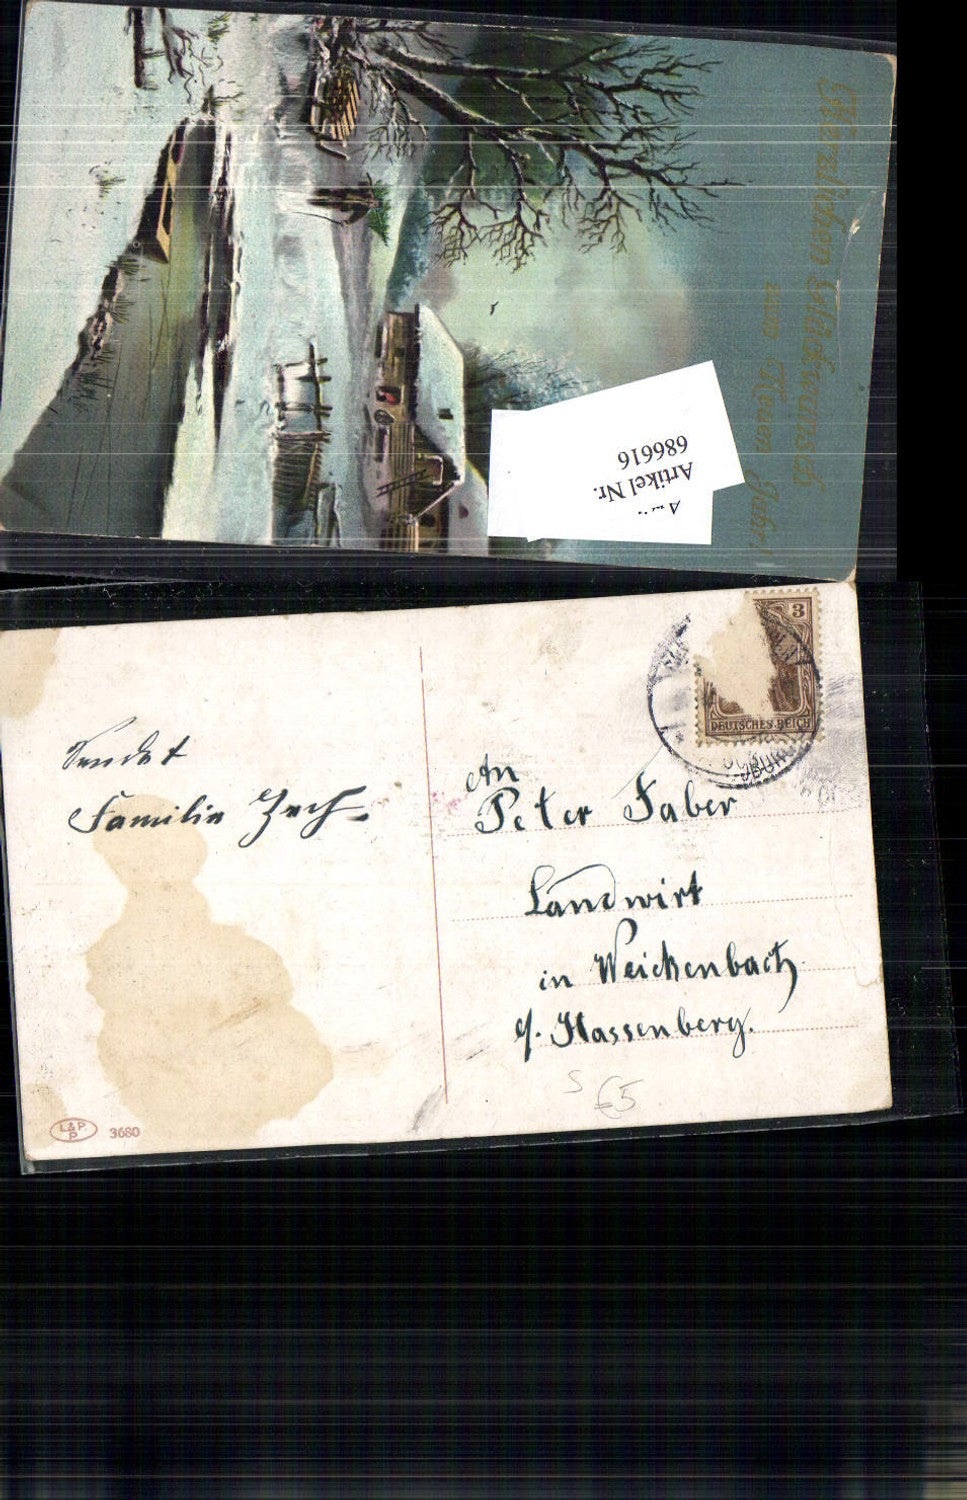 Herzlichen Glückwunsch
zum Neuen Jahr!
Artikel Nr.
686616
3
DEUTSCHES REICH
Sendet
Familie Zech
An
Peter Faber
Landwirt
in Weickenbach
b/. Klassenberg.
S €5
L&P
P
3680